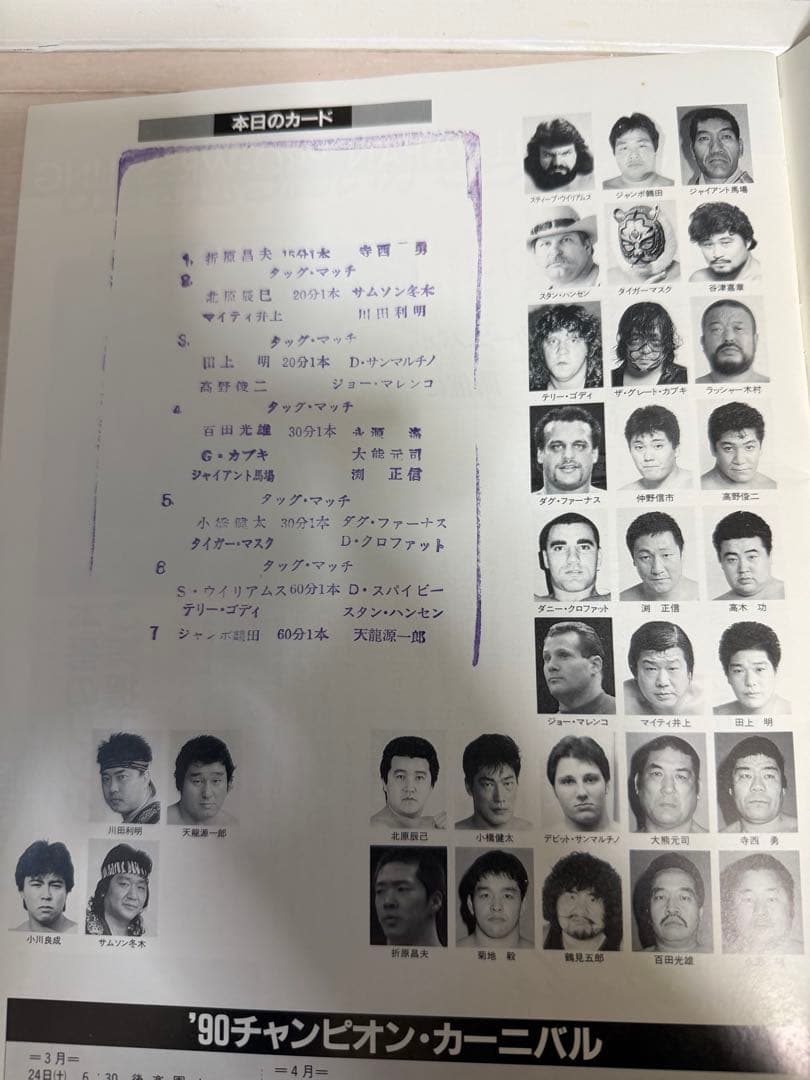 本日のカード
1. 折原昌夫 15分1本 寺西 勇
2. タッグ・マッチ
北原辰巳 20分1本 サムソン冬木
マイティ井上 川田利明
3. タッグ・マッチ
田上 明 20分1本 D・サンマルチノ
高野俊二 ジョー・マレンコ
4 タッグ・マッチ
百田光雄 30分1本
G・カブキ 大熊元司
ジャイアント馬場 渕 正信
5. タッグ・マッチ
小橋健太 30分1本 ダグ・ファーナス
タイガー・マスク D・クロファット
6 タッグ・マッチ
S・ウイリアムス 60分1本 D・スパイビー
テリー・ゴディ スタン・ハンセン
7 ジャンボ鶴田 60分1本 天龍源一郎
スティーブ・ウイリアムス ジャンボ鶴田 ジャイアント馬場
スタン・ハンセン タイガーマスク 谷津嘉章
テリー・ゴディ ザ・グレート・カブキ ラッシャー木村
ダグ・ファーナス 仲野信市 高野俊二
ダニー・クロファット 渕 正信 高木 功
ジョー・マレンコ マイティ井上 田上 明
川田利明 天龍源一郎
北原辰己 小橋健太 デビット・サンマルチノ 大熊元司 寺西 勇
小川良成 サムソン冬木
折原昌夫 菊地 毅 鶴見五郎 百田光雄
'90チャンピオン・カーニバル
＝3月＝
24日(土) 6:30
＝4月＝